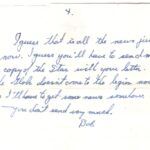 4.
I guess that is all the news just
now. I guess you'll have to send me
copy of the Star with your letter
Dick doesn't come to the legion now
I'll have to get some news somehow
you don't send very much.
Bob